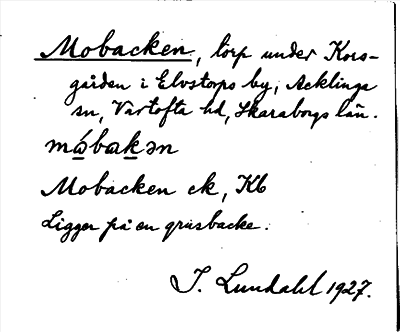 Mobacken, torp under Kors-
gården i Elvstorps by, Acklinga
sn, Vartofta hd, Skaraborgs län.
Mobacken ek, Kb
Ligger på en grusbacke.
J. Lundahl 1927.